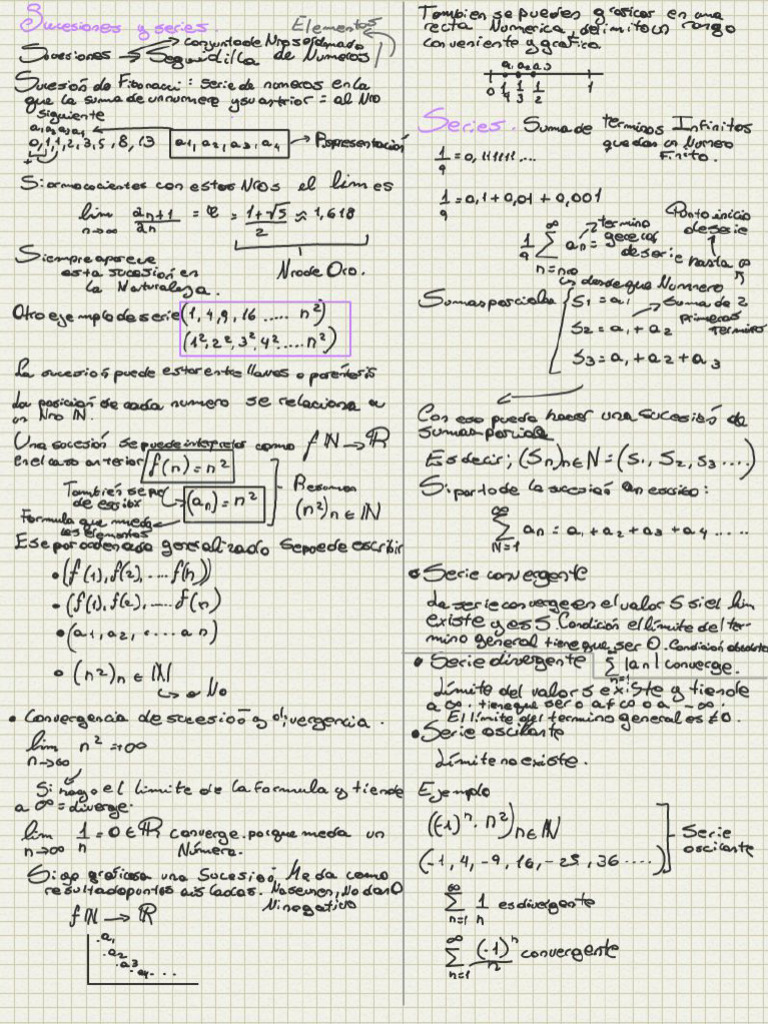 Sucesiones y series.
Elementos
conjunto de Nros ordenado
Sucesiones → Seguidilla de Numeros
Sucesión de Fibonacci: serie de numeros en la
que la suma de un numero y su anterior = al Nro
siguiente
a₁ a₂ a₃ a₄
0,1,1,2,3,5,8,13
+
a₁, a₂, a₃, a₄ → Representación
Si armo cocientes con estos Nros el lim es
lim n→∞ an+1/an = φ = (1+√5)/2 ≈ 1,618
Nro de Oro.
Siempre aparece
esta sucesión en
la Naturaleza.
Otro ejemplo de serie (1, 4, 9, 16 ..... n²)
(1², 2², 3², 4² .... n²)
La sucesión puede estar entre llaves o paréntesis
La posición de cada numero se relaciona a
un Nro IN.
Una sucesión se puede interpretar como f IN → IR
en el caso anterior f(n) = n²
También se po
de escribir (an) = n²
Resumen
(n²)n ∈ IN
Formula que mueda
los elementos
Ese par ordenado generalizado se puede escribir
• (f(1), f(2), .... f(n))
- (f(1), f(2), .... f(n)
• (a1, a2, .... an)
• (n²)n ∈ IN
→ o No
• Convergencia de sucesión y divergencia.
lim n→∞ n² = +∞
Si hago el límite de la formula y tiende
a ∞ = diverge.
lim n→∞ 1/n = 0 ∈ IR converge. porque me da un
Número.
Si yo graficara una Sucesión, Me da como
resultado puntos aislados. No se unen, No dan 0
Ni negativo
f IN → IR
a₁
a₂
a₃
a₄ . . .
Tambien se pueden graficar en una
recta Númerica, delimito un rango
conveniente y grafica
a₁ a₂ a₃
0 1/4 1/3 1/2 1
Series. Suma de terminos Infinitos
que dan un Numero
Finito.
1/9 = 0,111111...
1/9 = 0,1 + 0,01 + 0,001
1/9 ∞ Σ n=n₀ an =
termino
general
de serie
Punto inicio
de serie
hasta ∞
desde que Numero
Sumas parciales { S₁ = a₁
S₂ = a₁ + a₂ → Suma de 2
primeros
terminos
S₃ = a₁ + a₂ + a₃
Con eso puedo hacer una sucesión de
sumas parciales
Es decir; (Sn)n∈N = (S₁, S₂, S₃ ....)
Si parto de la sucesión an escribo:
∞ Σ N=1 an = a₁ + a₂ + a₃ + a4 .....
• Serie convergente
La serie converge en el valor S si el lim
existe y es S. Condición el límite del ter-
mino general tiene que ser 0. Condición absoluta
∞ Σ n=1 |an| converge.
• Serie divergente
Límite del valor s existe y tiende
a ∞. tiene que ser o a +∞ o a -∞.
El límite del termino general es ≠0.
• Serie oscilante
Límite no existe.
Ejemplo
((-1)ⁿ · n²)n∈IN
(-1, 4, -9, 16, -25, 36 ....)
Serie
oscilante
∞ Σ n=1 1/n es divergente
∞ Σ n=1 (-1)ⁿ/n convergente